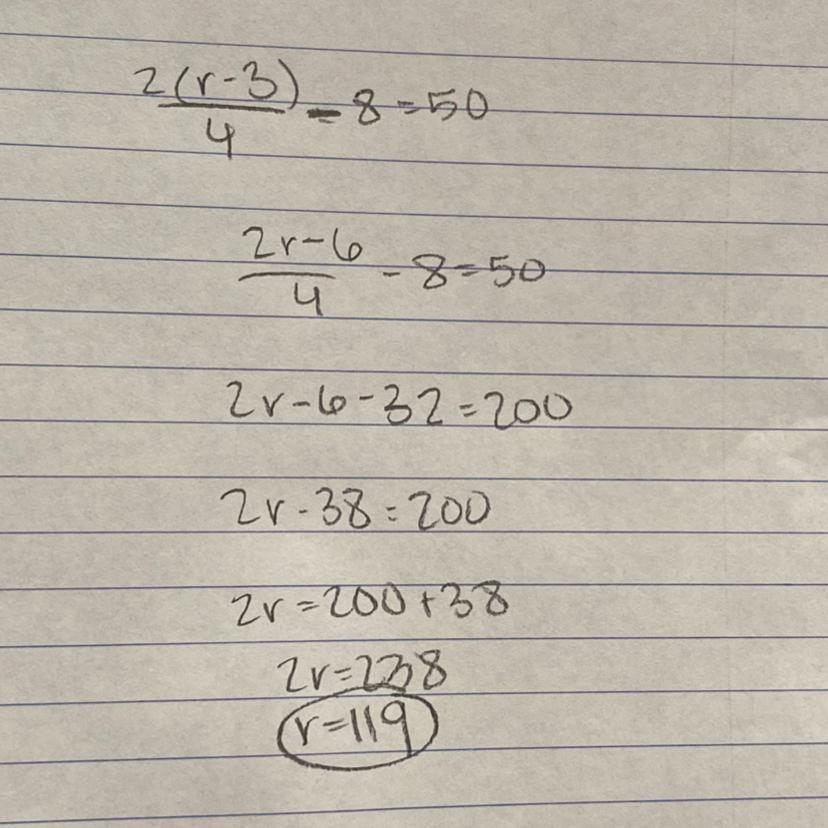 2(r-3)/4 - 8 = 50
2r-6/4 - 8 = 50
2r-6-32=200
2r-38=200
2r=200+38
2r=238
r=119